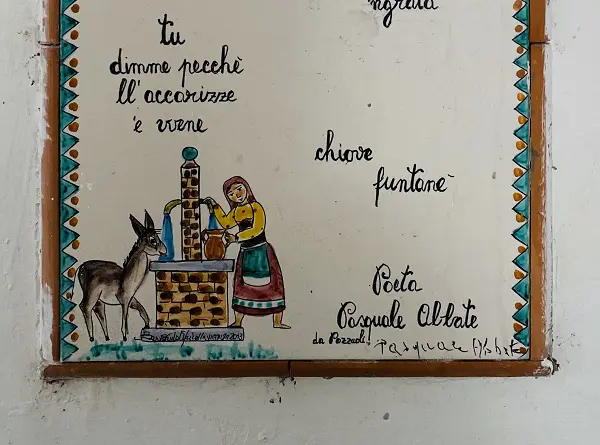 ngrata
tu
dimme pecchè
ll'accarizze
'e vvene
chiove
funtanè
Poeta
Pasquale Abbate
da Pozzuoli
Pasquale Abbate